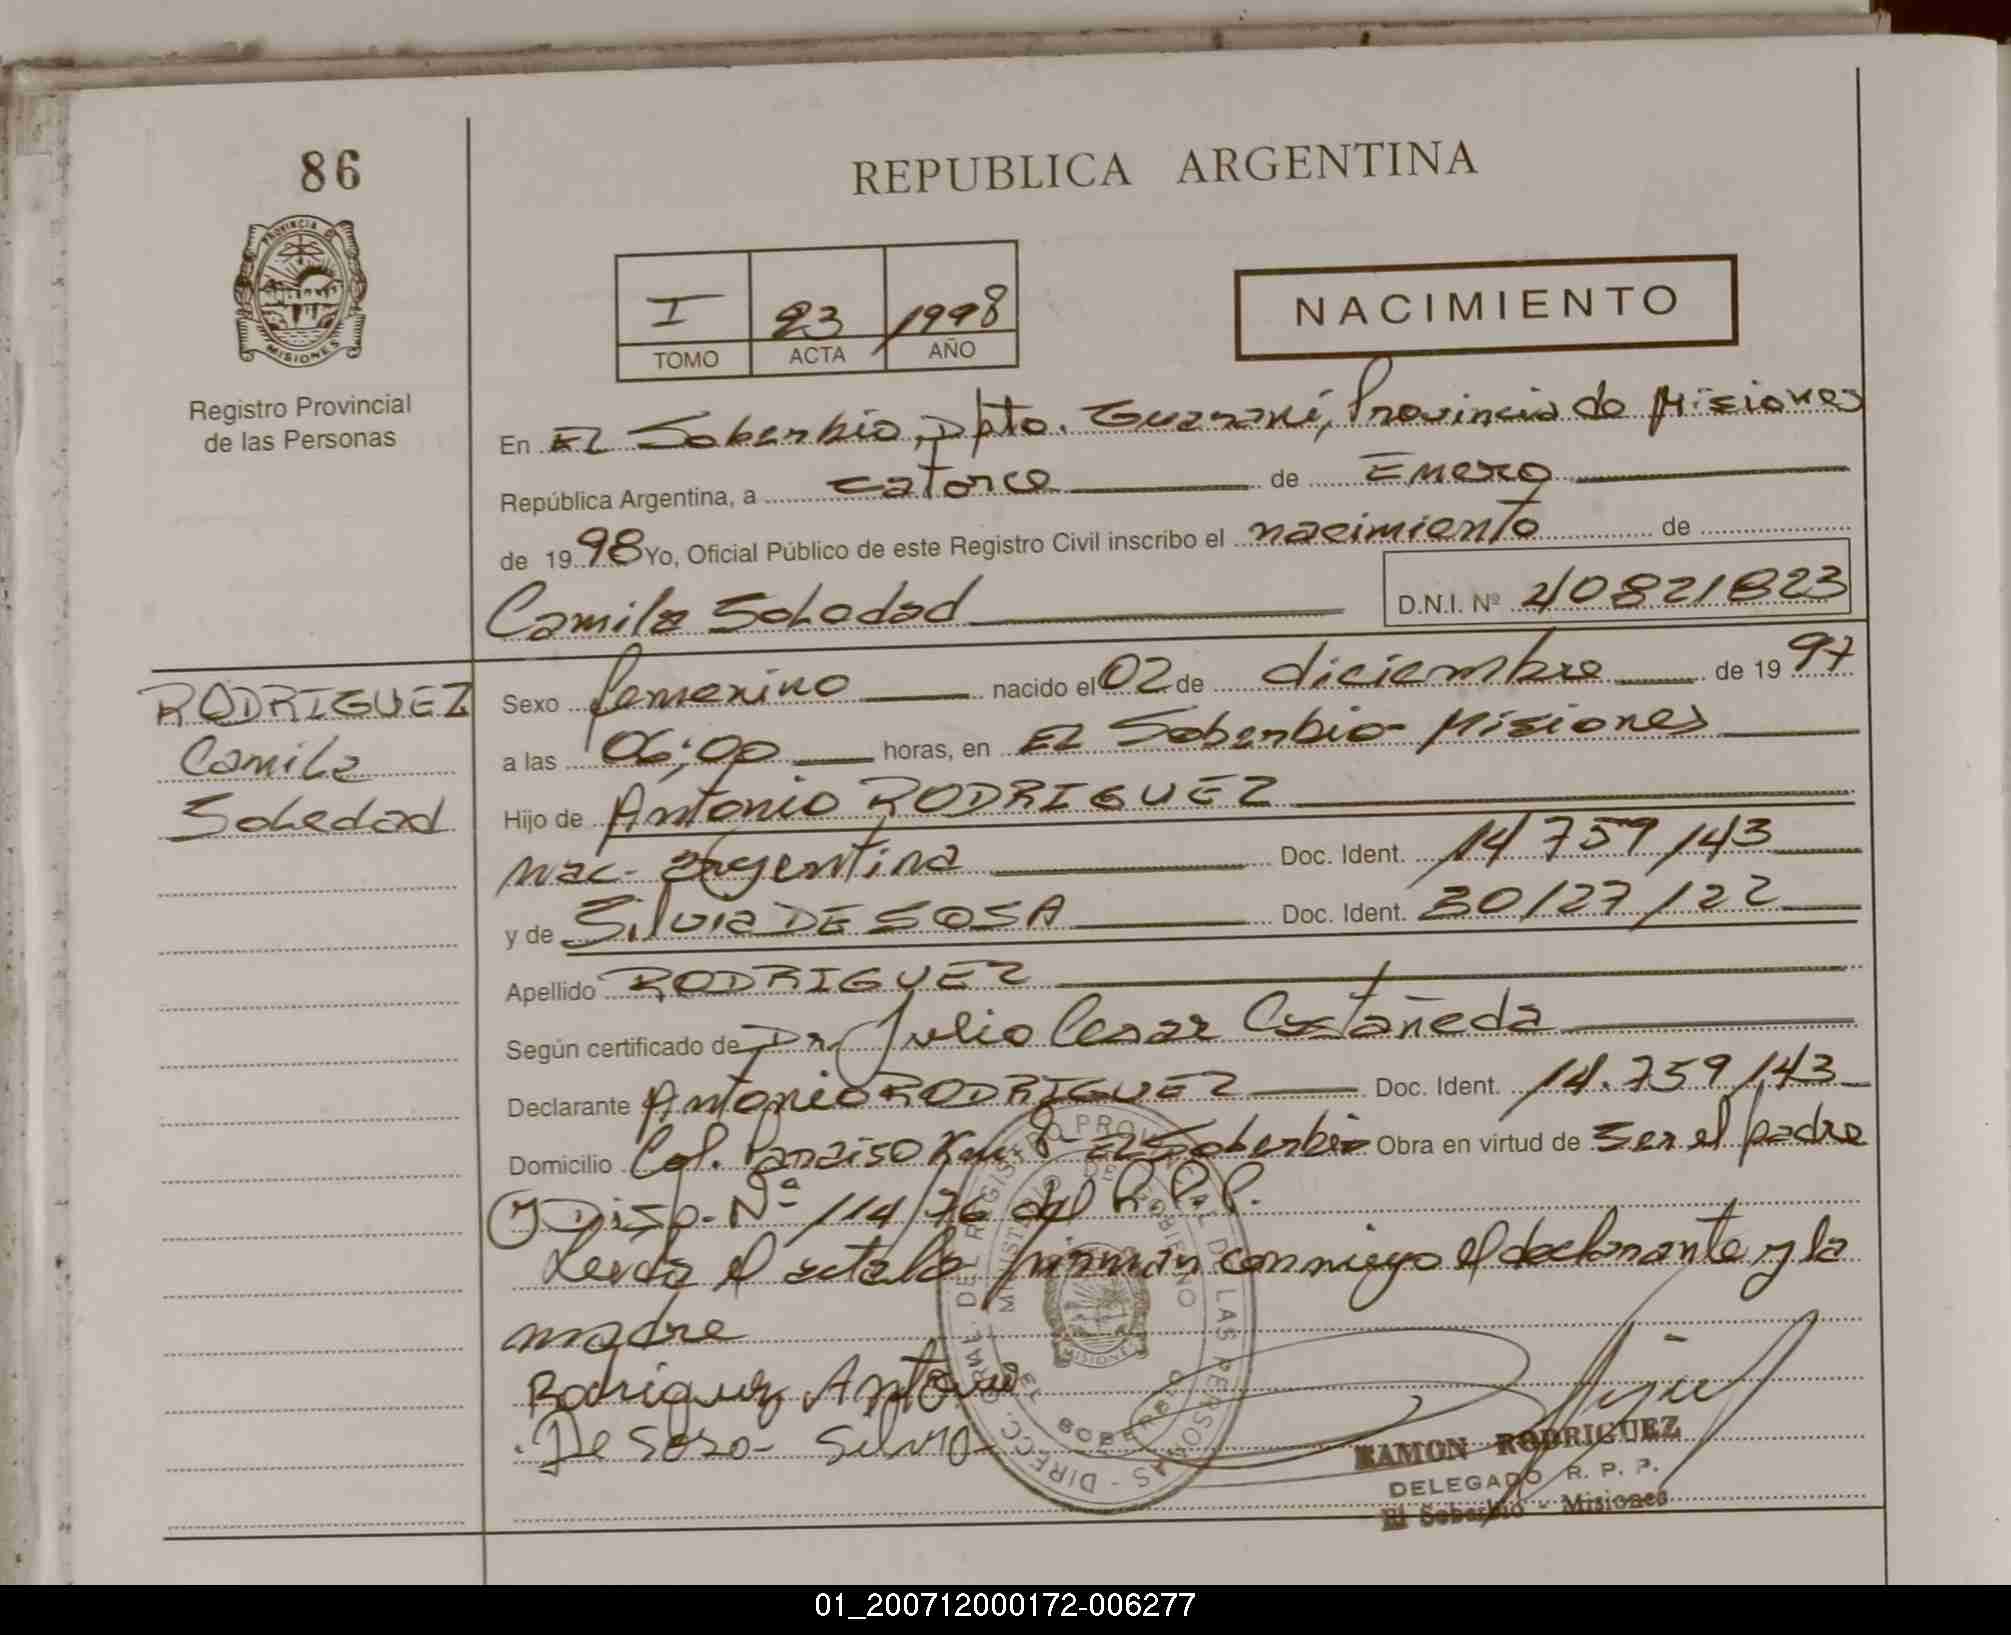 86
REPUBLICA ARGENTINA
PROVINCIA DE
MISIONES
Registro Provincial
de las Personas
I 23 1998
TOMO ACTA AÑO
NACIMIENTO
En El Soberbio, Dpto. Guaraní, Provincia de Misiones
República Argentina, a catorce de Enero
de 1998 Yo, Oficial Público de este Registro Civil inscribo el nacimiento de
Camila Soledad D.N.I. Nº 40821823
RODRIGUEZ
Camila
Soledad
Sexo femenino nacido el 02 de diciembre de 1997
a las 06:00 horas, en El Soberbio- Misiones
Hijo de Antonio RODRIGUEZ
nac- argentina Doc. Ident. 14 759 143
y de Silvia DE SOSA Doc. Ident. 30/27/22
Apellido RODRIGUEZ
Según certificado de Dr. Julio Cesar Castañeda
Declarante Antonio RODRIGUEZ Doc. Ident. 14.759 143
Domicilio Col. Paraiso Km 8- El Soberbio Obra en virtud de ser el padre
y Disp- Nº 114/76 del R.P.P.
Leida el acta la firman conmigo el declarante y la
madre
Rodriguez Antonio
De Sosa- Silvia-
DIRECC. GRAL. DEL REGISTRO PROVINCIAL DE LAS PERSONAS -
MINISTERIO DE GOBIERNO
EL SOBERBIO
MISIONES
RAMON RODRIGUEZ
DELEGADO R. P. P.
El Soberbio - Misiones
01_200712000172-006277